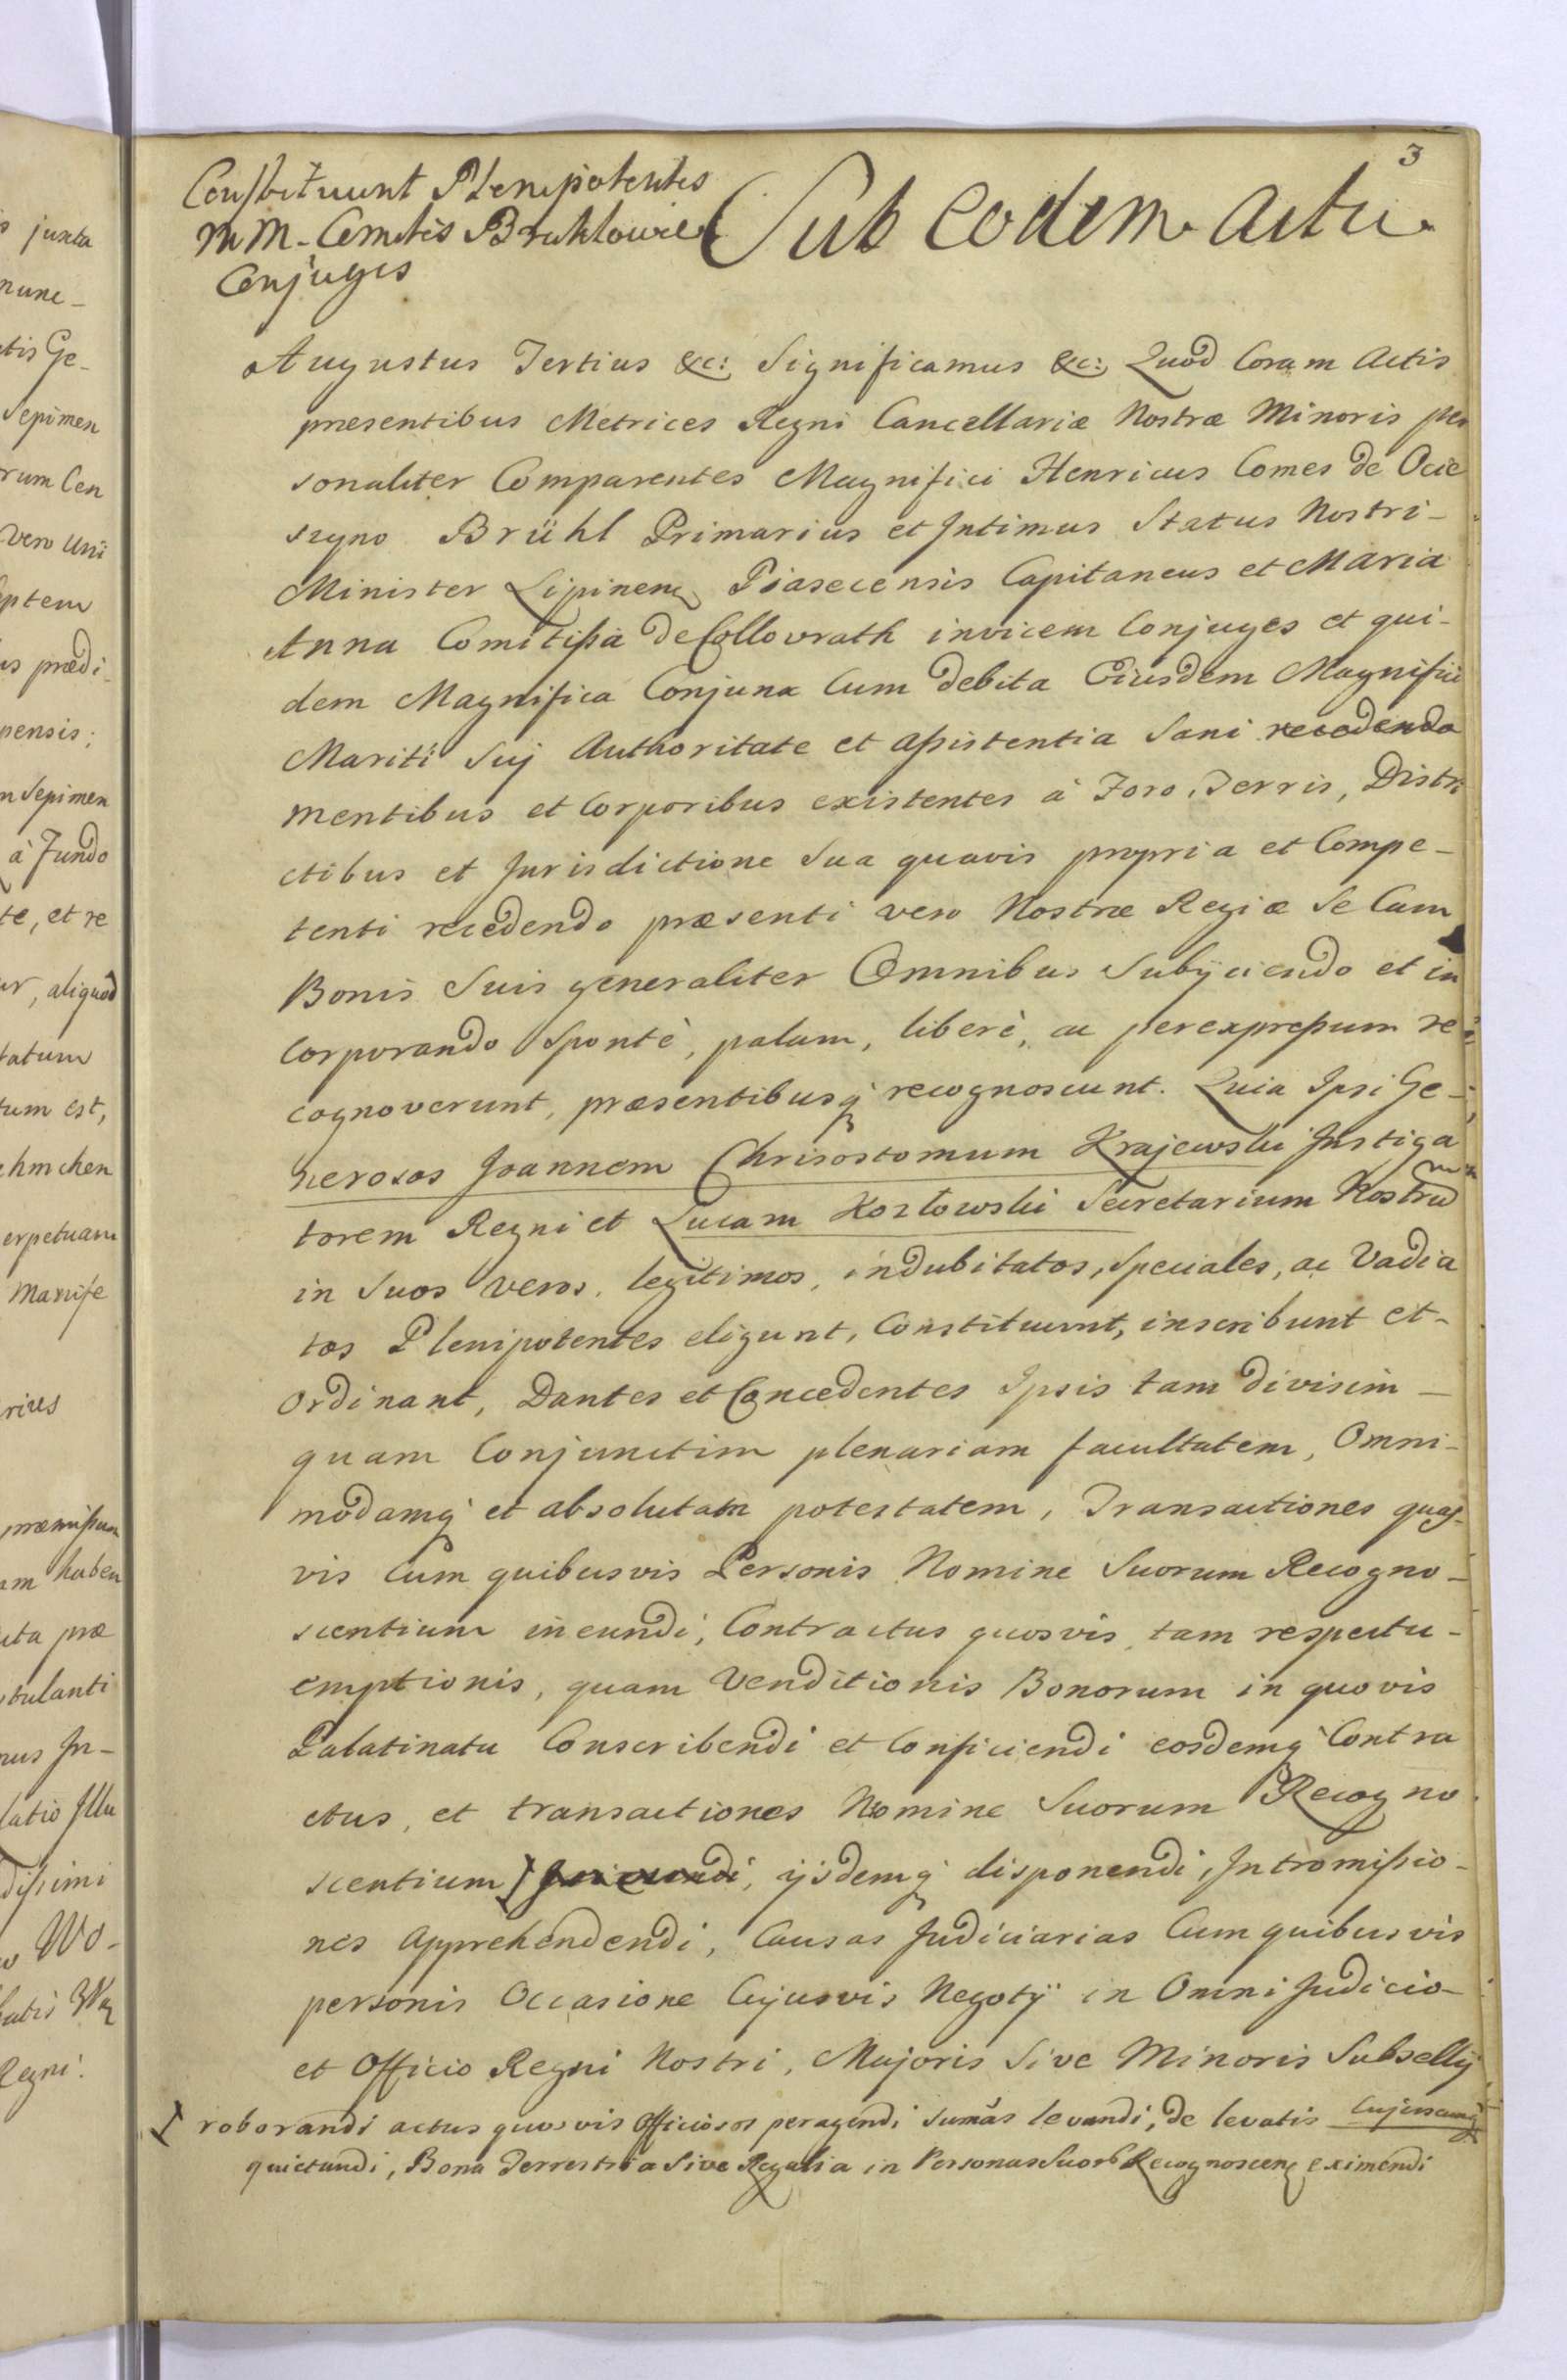 3
Constituunt Plenipotentes
MM. Comites Bruhlowie
Conjuges
Sub eodem actu
Augustus Tertius &c: Significamus &c: Quod Coram Actis
presentibus Metrices Regni Cancellariæ Nostræ Minoris per
sonaliter Comparentes Magnifici Henricus Comes de Ocie
szyno Brühl Primarius et Intimus Status Nostri-
Minister Lipinen Piasecensis Capitaneus et Maria
Anna Comitißa de Collovrath invicem Conjuges et qui-
dem Magnifica Conjunx Cum debita Eiusdem Magnifici
Mariti Suj Authoritate et aßistentia Sani recedendo
mentibus et Corporibus existentes à Foro, Terris, Distri
ctibus et Jurisdictione Sua quavis propria et Compe-
tenti recedendo præsenti vero Nostræ Regiæ Se Cum
Bonis Suis generaliter Omnibus Subÿciendo et in
corporando Spontè, palam, liberè, ac per expreßum re
cognoverunt, præsentibusq recognoscunt. Quia Ipsi Ge-
nerosos Joannem Chrisostomum Krajewski Instiga
torem Regni et Lucam Kozłowski Secretarium Nostrū
in Suos veros, legitimos, indubitatos, Speciales, ac Vadia
tos Plenipotentes eligunt, Constituunt, inscribunt et-
Ordinant, Dantes et Concedentes Ipsis tam divisim-
quam Conjunctim plenariam facultatem, Omni-
modamq et absolutam potestatem, Transactiones quas-
vis Cum quibusvis Personis Nomine Suorum Recogno-
scentium ineundi, Contractus quosvis tam respectu-
emptionis, quam Venditionis Bonorum in quovis
Palatinatu Conscribendi et Conficiendi eosdemq Contra
ctus, et transactiones Nomine Suorum Recogno
scentium ÿsdemq disponendi, Intromißio-
nes Apprehendendi, Causas Judiciarias Cum quibusvis
personis Occasione Cujusvis Negotÿ in Omni Judicio-
et Officio Regni Nostri, Majoris Sive Minoris Subsellÿ
roborandi actus quosvis Officiosos peragendi Sumas levandi, de levatis Cujuscunq
quietandi, Bona Terrestria Sive Regalia in Personas Suorb Recognoscen eximendi
juxta
nunc-
Sepimen
rum Cen
vero Uni
ptem
prædi
pensis;
Sepimen
à Fundo
te, et re
aliquod
tatum
tum est,
hmchen
erpetuam
Manife
præmißum
haben
præ
tulanti
nus In-
latio Illu
dißimi
Wo-
Regni.